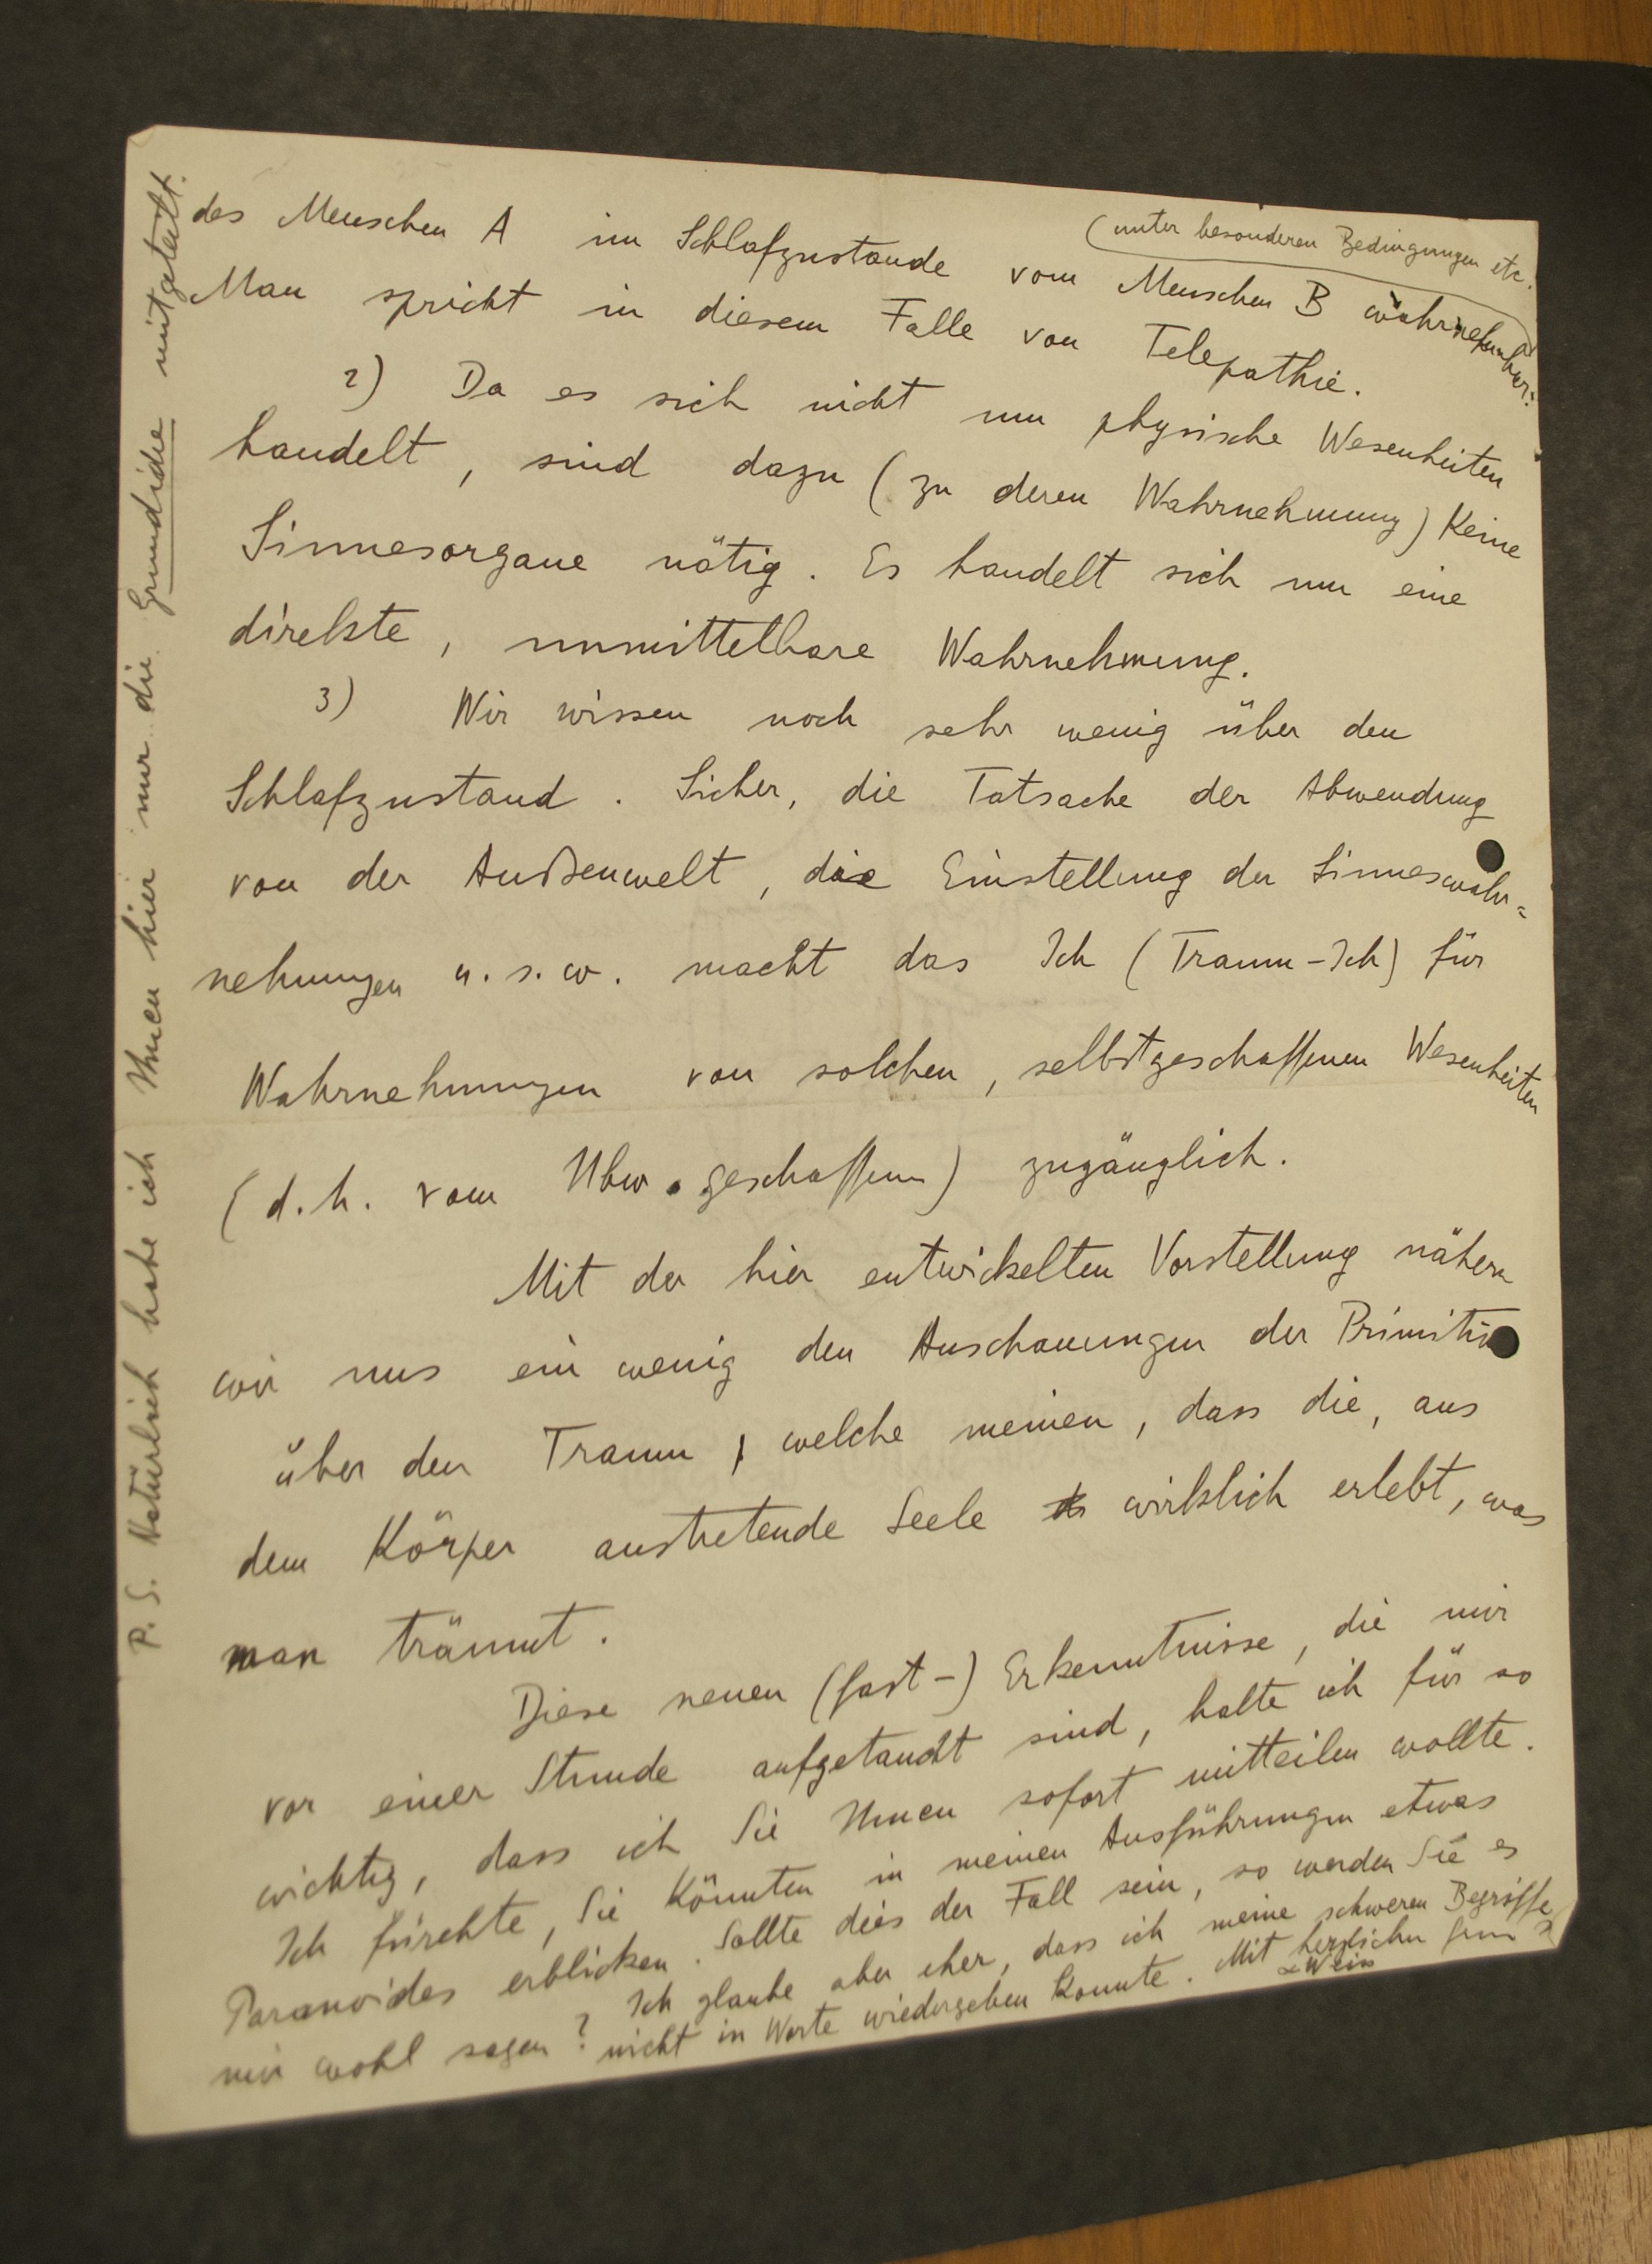 (unter besonderen Bedingungen etc.
des Menschen A im Schlafzustande vom Menschen B wahrnehmbar.
Man spricht in diesem Falle von Telepathie.
2) Da es sich nicht um physische Wesenheiten
handelt, sind dazu (zu deren Wahrnehmung) Keine
Sinnesorgane nötig. Es handelt sich um eine
direkte, unmittelbare Wahrnehmung.
3) Wir wissen noch sehr wenig über den
Schlafzustand. Sicher, die Tatsache der Abwendung
von der Außenwelt, die Einstellung der Sinneswahr=
nehmungen u. s. w. macht das Ich (Traum-Ich) für
Wahrnehmungen von solchen, selbstgeschaffenen Wesenheiten
(d. h. vom Ubw. geschaffenen) zugänglich.
Mit der hier entwickelten Vorstellung nähern
wir uns ein wenig den Anschauungen der
über den Traum, welche meinen, dass die, aus
dem Körper austretende Seele wirklich erlebt, was
man träumt.
Diese neuen (fast-) Erkenntnisse, die mir
vor einer Stunde aufgetaucht sind, halte ich für so
wichtig, dass ich Sie Ihnen sofort mitteilen wollte.
Ich fürchte, Sie Könnten in meinen Ausführungen etwas
Paranoides erblicken. Sollte dies der Fall sein, so werden Sie es
mir wohl sagen? Ich glaube aber eher, dass ich meine schweren Begriffe
nicht in Worte wiedergeben Konnte. Mit herzlichen
P. S. Natürlich habe ich Ihnen hier nur die Grundidee mitgeteilt.